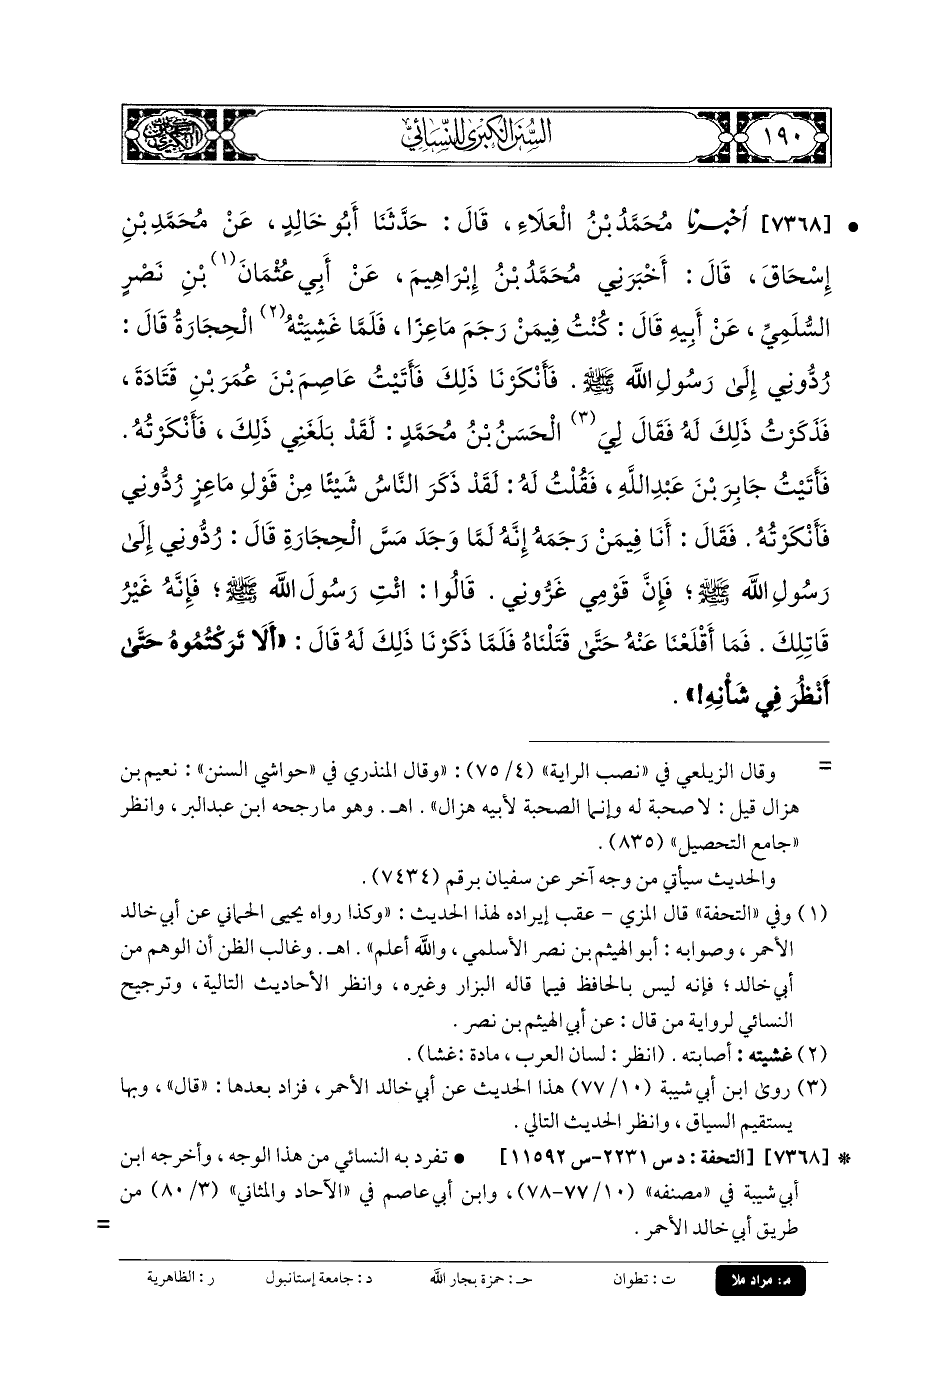 ١٩٠
السُّنَنُ الكُبْرَى للنِّسَائِيِّ
• [٧٣٦٨] أَخْبَرَنَا مُحَمَّدُ بْنُ الْعَلَاءِ، قَالَ : حَدَّثَنَا أَبُو خَالِدٍ، عَنْ مُحَمَّدِ بْنِ
إِسْحَاقَ، قَالَ : أَخْبَرَنِي مُحَمَّدُ بْنُ إِبْرَاهِيمَ، عَنْ أَبِي عُثْمَانَ(١) بْنِ نَصْرٍ
السُّلَمِيِّ، عَنْ أَبِيهِ قَالَ : كُنْتُ فِيمَنْ رَجَمَ مَاعِزًا، فَلَمَّا غَشِيَتْهُ(٢) الْحِجَارَةُ قَالَ :
رُدُّونِي إِلَىٰ رَسُولِ اللَّه ﷺ . فَأَنْكَرْنَا ذَلِكَ فَأَتَيْتُ عَاصِمَ بْنَ عُمَرَ بْنِ قَتَادَةَ،
فَذَكَرْتُ ذَلِكَ لَهُ فَقَالَ لِيَ(٣) الْحَسَنُ بْنُ مُحَمَّدٍ : لَقَدْ بَلَغَنِي ذَلِكَ، فَأَنْكَرْتُهُ.
فَأَتَيْتُ جَابِرَ بْنَ عَبْدِاللَّهِ، فَقُلْتُ لَهُ : لَقَدْ ذَكَرَ النَّاسُ شَيْئًا مِنْ قَوْلِ مَاعِزٍ رُدُّونِي
فَأَنْكَرْتُهُ. فَقَالَ : أَنَا فِيمَنْ رَجَمَهُ إِنَّهُ لَمَّا وَجَدَ مَسَّ الْحِجَارَةِ قَالَ : رُدُّونِي إِلَىٰ
رَسُولِ اللَّه ﷺ ؛ فَإِنَّ قَوْمِي غَرُّونِي . قَالُوا : ائْتِ رَسُولَ اللَّه ﷺ ؛ فَإِنَّهُ غَيْرُ
قَاتِلِكَ . فَمَا أَقْلَعْنَا عَنْهُ حَتَّىٰ قَتَلْنَاهُ فَلَمَّا ذَكَرْنَا ذَلِكَ لَهُ قَالَ : «أَلَا تَرَكْتُمُوهُ حَتَّىٰ
أَنْظُرَ فِي شَأْنِهِ!» .
= وقال الزيلعي في «نصب الراية» (٤/ ٧٥) : «وقال المنذري في «حواشي السنن» : نعيم بن
هزال قيل : لا صحبة له وإنما الصحبة لأبيه هزال» . اهـ. وهو ما رجحه ابن عبدالبر، وانظر
«جامع التحصيل» (٨٣٥) .
والحديث سيأتي من وجه آخر عن سفيان برقم (٧٤٣٤) .
(١) وفي «التحفة» قال المزي - عقب إيراده لهذا الحديث : «وكذا رواه يحيى الحماني عن أبي خالد
الأحمر، وصوابه : أبو الهيثم بن نصر الأسلمي، والله أعلم» . اهـ. وغالب الظن أن الوهم من
أبي خالد؛ فإنه ليس بالحافظ فيما قاله البزار وغيره، وانظر الأحاديث التالية، وترجيح
النسائي لرواية من قال : عن أبي الهيثم بن نصر .
(٢) غشيته : أصابته . (انظر : لسان العرب، مادة :غشا) .
(٣) روى ابن أبي شيبة (١٠/ ٧٧) هذا الحديث عن أبي خالد الأحمر، فزاد بعدها : «قال»، وبها
يستقيم السياق، وانظر الحديث التالي .
* [٧٣٦٨] [التحفة : د س ٢٢٣١-س ١١٥٩٢] • تفرد به النسائي من هذا الوجه، وأخرجه ابن
أبي شيبة في «مصنفه» (١٠/ ٧٧-٧٨)، وابن أبي عاصم في «الآحاد والمثاني» (٣/ ٨٠) من
طريق أبي خالد الأحمر . =
م: مراد ملا ت : تطوان حـ: حمزة بجار الله د: جامعة إستانبول ر: الظاهرية